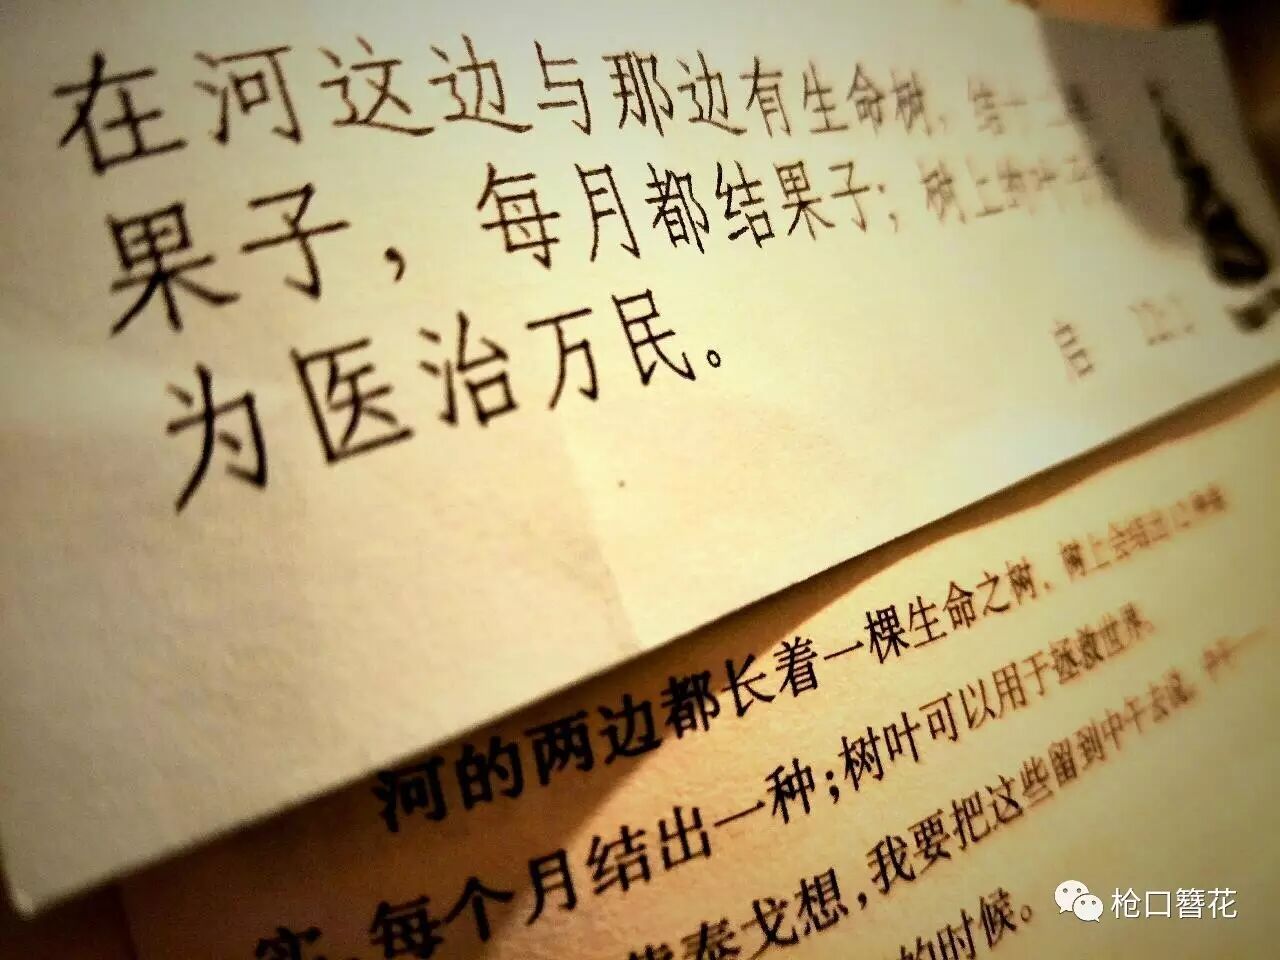 在河这边与那边有生命树，结十二
果子，每月都结果子；树上的
为医治万民。
河的两边都长着一棵生命之树，树上会结出12种果
实，每个月结出一种；树叶可以用于拯救世界。
泰戈想，我要把这些留到中午去读，
的时候。
枪口簪花